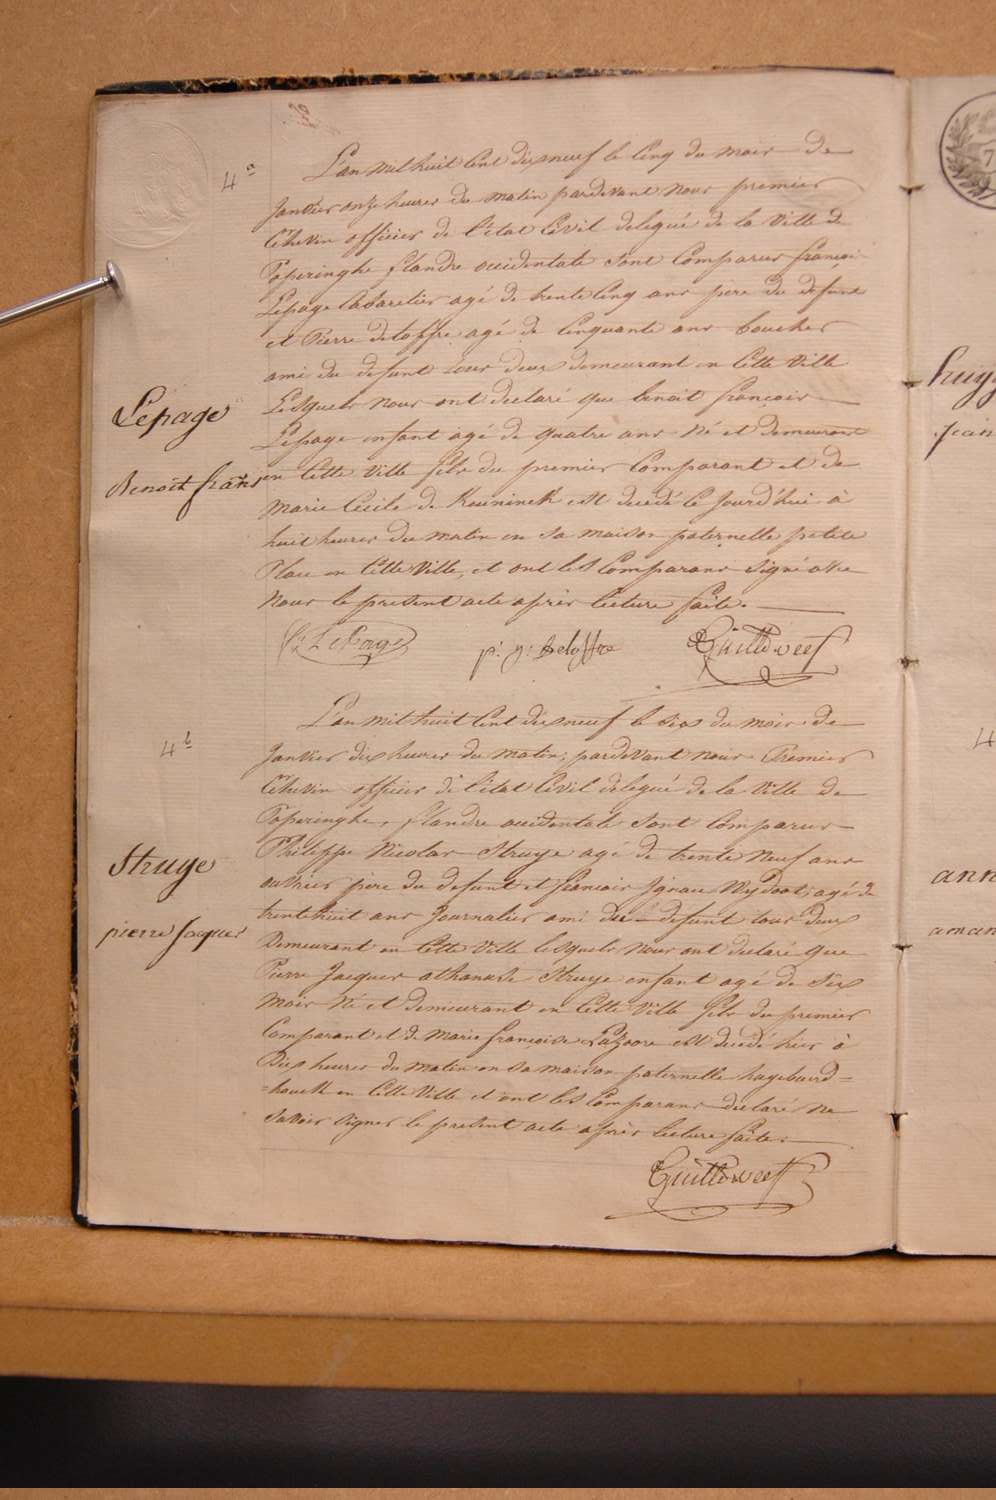 4a
L'an mil huit cent dix neuf le cinq du mois de
Janvier onze heures du matin pardevant nous premier
Echevin officier de l'état Civil delegué de la Ville de
Poperinghe flandre occidentale sont Comparus françois
Lepage Cabaretier agé de trente Cinq ans pere du defunt
et Pierre deloffre agé de Cinquante ans boucher
ami du defunt tous deux demeurant en Cette Ville
Lesquels nous ont declaré que benoit françois
Lepage
Lepage enfant agé de quatre ans né et demeurant
Benoit frans
en Cette Ville fils du premier Comparant et de
Marie Cecile de Keuninck est decedé Ce jourd'hui à
huit heures du matin en sa maison paternelle petite
Place en Cette Ville, et ont les Comparans signé avec
Nous le present acte après lecture faite.
LePage
p: j: Deloffre
4b
L'an mil huit Cent dix neuf le six du mois de
Janvier dix heures du matin; pardevant nous Premier
Echevin officier de l'état Civil delegué de la Ville de
Poperinghe, flandre occidentale sont Comparus
Struye
Philippe Nicolas Struye agé de trente Neuf ans
ouvrier pere du defunt et francois Ignace agé de
pierre Jacques
trente huit ans Journalier ami du defunt tous deux
Demeurant en Cette Ville lesquels nous ont declaré que
Pierre Jacques athanase Struye enfant agé de Six
Mois Né et demeurant en Cette Ville fils du premier
Comparant et de Marie françoise est decedé hier à
Dix heures du matin en sa maison paternelle
en Cette Ville et ont les Comparans declaré ne
Savoir Signer le present acte après lecture faite.